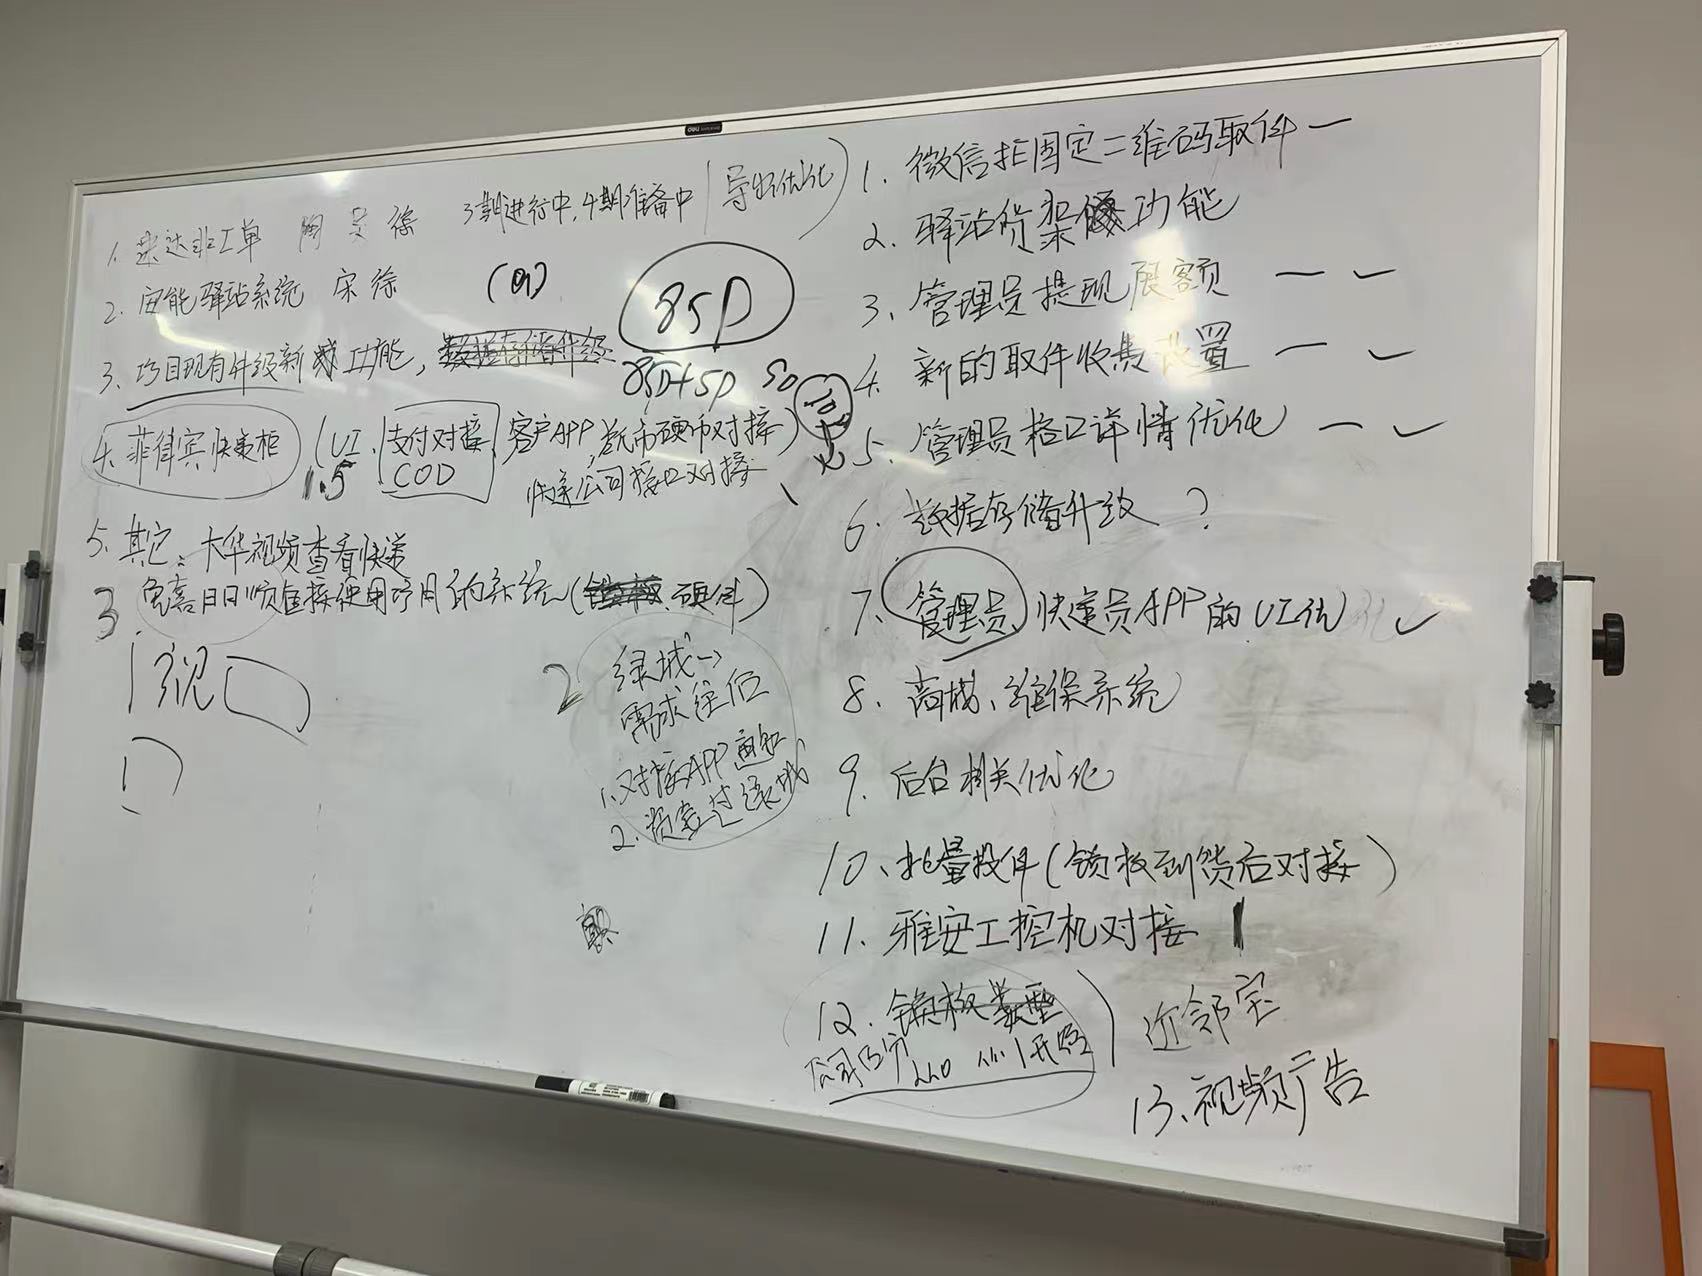 1. 来达非工单 陶 吴 徐 3期进行中,4期准备中 导出优化)
2. 宙能驿站系统 宋 徐
85D
3、巧目现有升级新功能,数据存储升级
85D+5D 5D
4. 菲律宾快递柜 (UI、支付对接、客户APP,纸币硬币对接)
1.5 COD 快递公司接口对接
5. 其它:大华视频查看快递
3 兔喜日日顺直接使用巧用的系统(锁板 硬件)
2 绿城→
需求往后
1.对接APP通知
2.
1. 微信非固定二维码取件 —
2. 驿站货架功能
3. 管理员提现 限额 — ✓
4. 新的取件收费设置 — ✓
5. 管理员格口详情优化 — ✓
6. 数据存储升级 ?
7. 管理员、快递员APP的UI优化 ✓
8. 商城、维保系统
9. 后台相关优化
10、批量投件(锁板到货后对接)
11. 雅安工控机对接 1
12. 锁板类型
近邻宝
13、视频广告